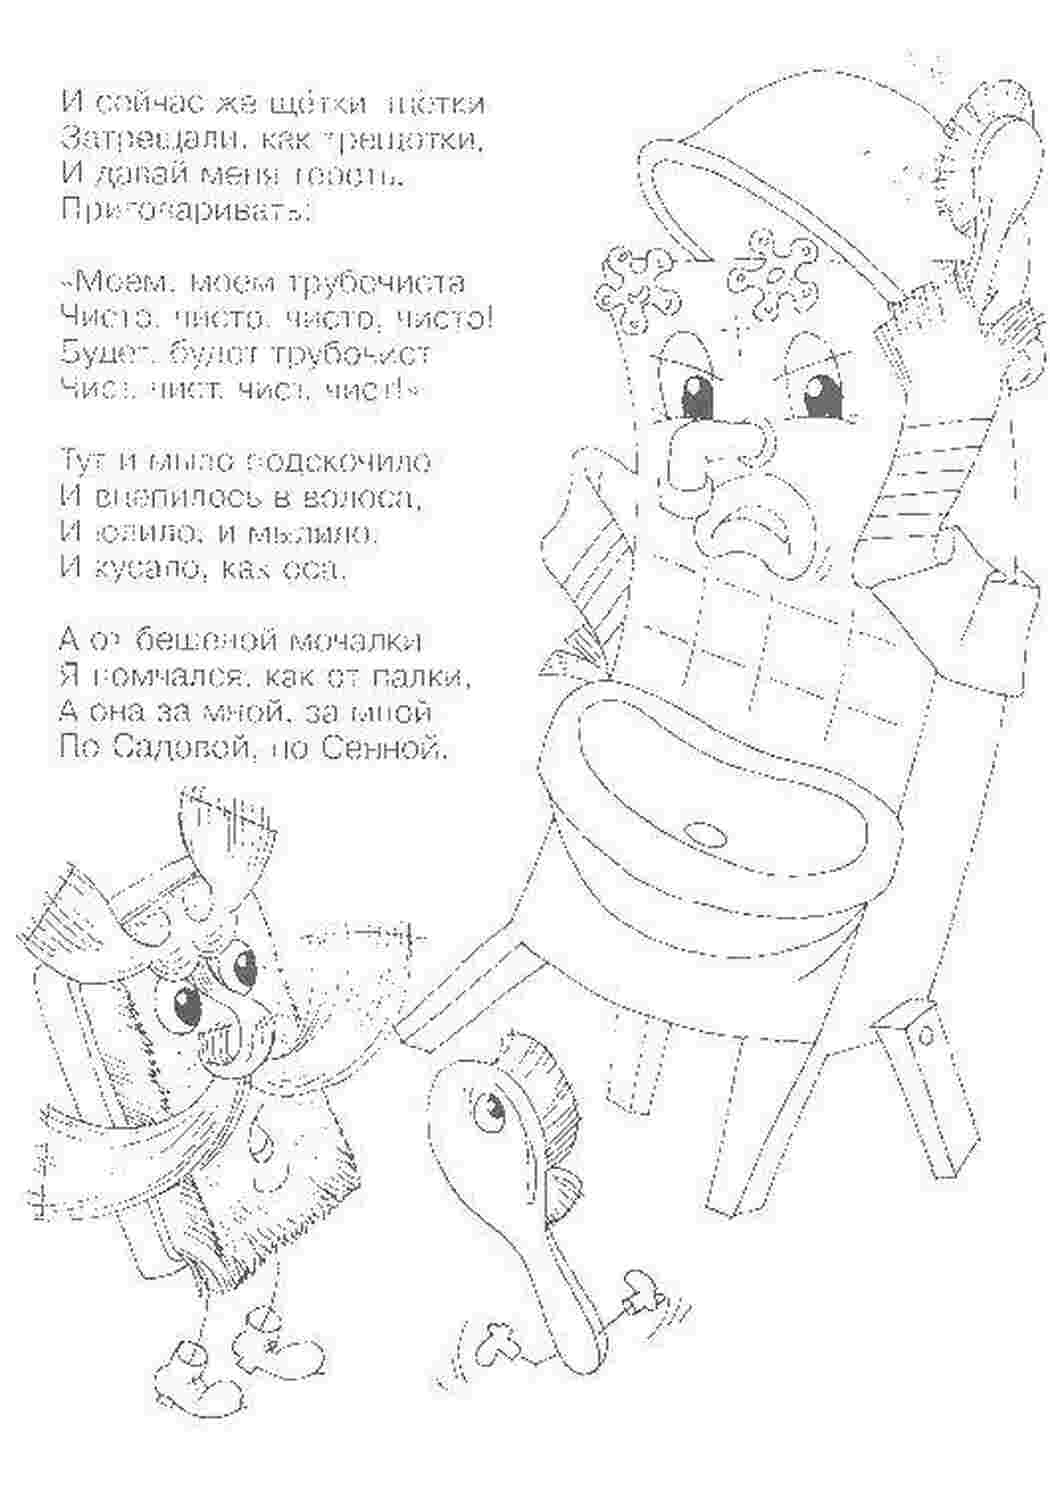 И сейчас же щётки, щётки
Затрещали, как трещотки,
И давай меня тереть,
Приговаривать:
«Моем, моем трубочиста
Чисто, чисто, чисто, чисто!
Будет, будет трубочист
Чист, чист, чист, чист!»
Тут и мыло подскочило
И вцепилось в волоса,
И юлило, и мылило,
И кусало, как оса.
А от бешеной мочалки
Я помчался, как от палки,
А она за мной, за мной
По Садовой, по Сенной.